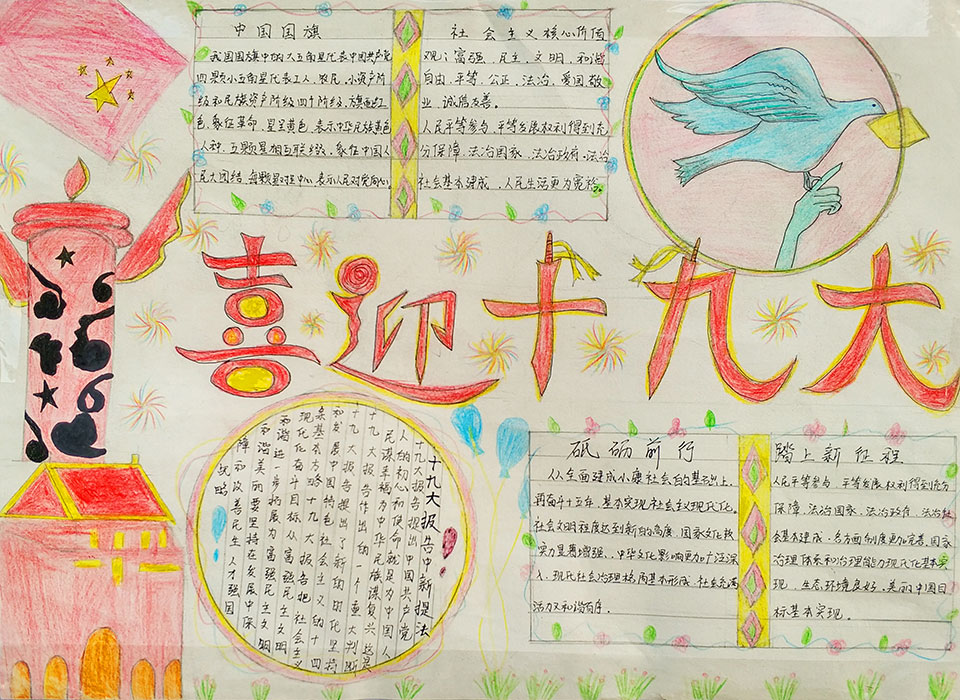 中国国旗
我国国旗中的大五角星代表中国共产党
四颗小五角星代表工人、农民、小资产阶
级和民族资产阶级四个阶级。旗面红
色,象征革命,星呈黄色,表示中华民族黄色
人种,五颗星相互联络,象征中国人
民大团结,每颗星对中心,表示人民对党向心
社会主义核心价值
观:富强、民主、文明、和谐
自由、平等、公正、法治、爱国敬
业、诚信友善。
人民平等参与、平等发展权利得到充
分保障,法治国家、法治政府、法治
社会基本建成,人民生活更为宽裕。
喜迎十九大
十九大报告中新提法
十九大报告提出中国共产党
人的初心和使命就是为中国人
民谋幸福,为中华民族谋复兴,这是
十九大报告作出的一个重大判断
十九大报告提出了新的时代坚持
和发展中国特色社会主义的十四
条基本方略十九大报告把社会主义
现代化奋斗目标从富强民主文明
和谐进一步拓展为富强民主文明
和谐美丽要坚持在发展中保
障和改善民生人才强国
战略
砥砺前行
从全面建成小康社会的基础上,
再奋斗十五年,基本实现社会主义现代化。
社会文明程度达到新的高度,国家文化软
实力显著增强,中华文化影响更加广泛深
入,现代社会治理格局基本形成,社会充满
活力又和谐有序。
踏上新征程
人民平等参与、平等发展权利得到充分
保障,法治国家,法治政府,法治社
会基本建成,各方面制度更加完善,国家
治理体系和治理能力现代化基本实
现,生态环境良好,美丽中国目
标基本实现。